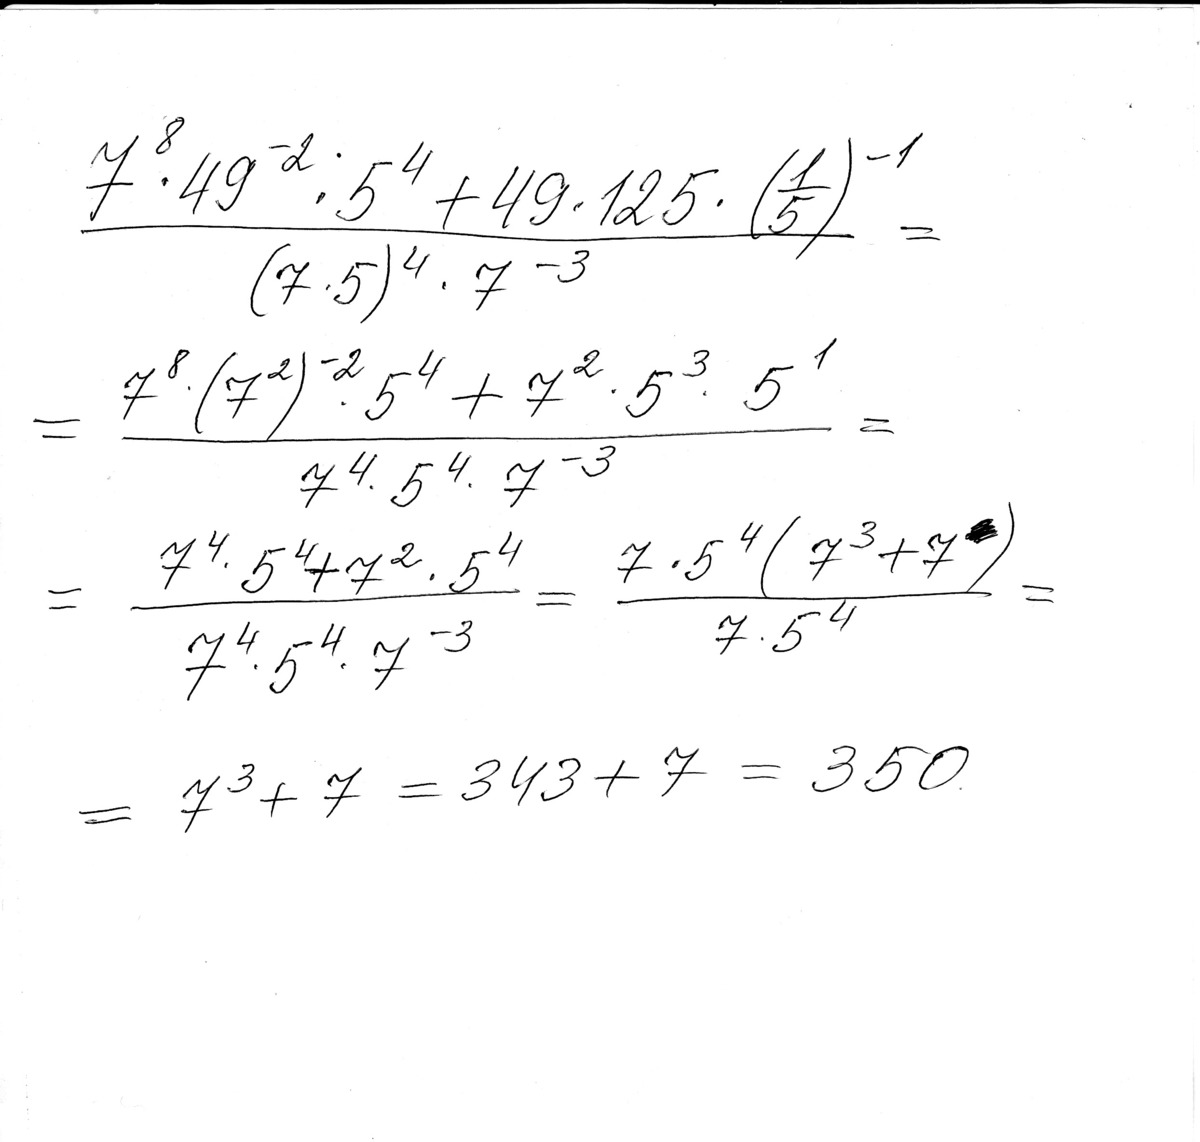 7⁸·49⁻²·5⁴+49·125·(1/5)⁻¹ =
(7·5)⁴·7⁻³
= 7⁸·(7²)⁻²·5⁴+7²·5³·5¹ =
7⁴·5⁴·7⁻³
= 7⁴·5⁴+7²·5⁴ = 7·5⁴(7³+7) =
7⁴·5⁴·7⁻³ 7·5⁴
= 7³+7 = 343+7 = 350.